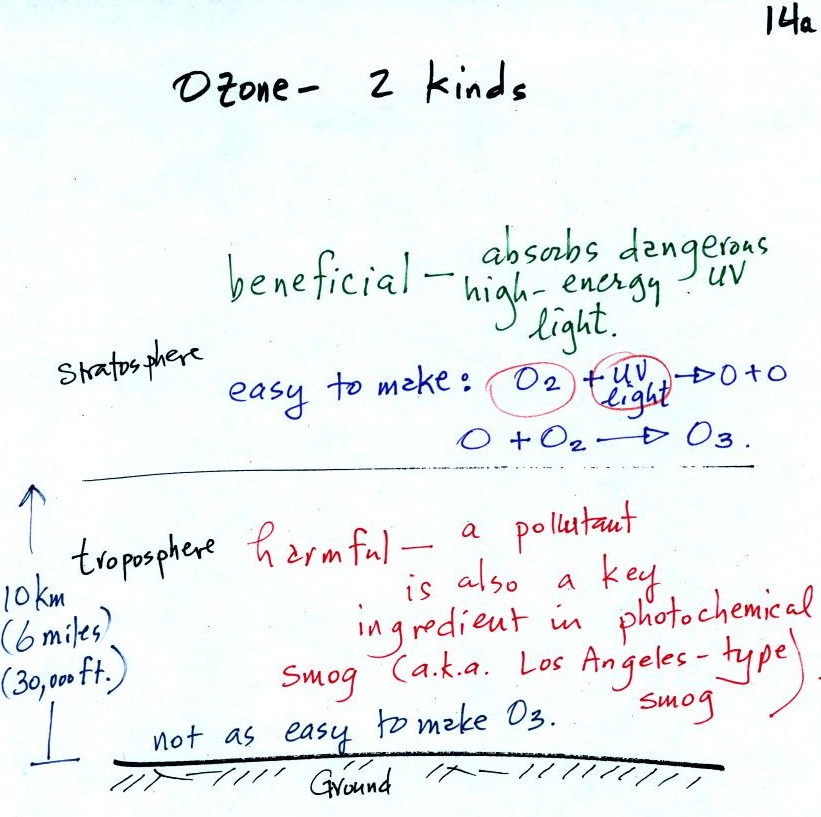 14a
Ozone- 2 kinds
beneficial - absorbs dangerous
high-energy UV
light.
Stratosphere
easy to make: O2 + UV light → O + O
O + O2 → O3.
troposphere harmful - a pollutant
is also a key
ingredient in photochemical
smog (a.k.a. Los Angeles-type
smog).
10 km
(6 miles)
(30,000 ft.)
not as easy to make O3.
Ground